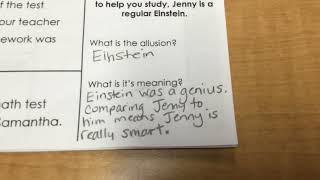 of the test
our teacher
ework was
ath test
Samantha.
to help you study, Jenny is a
regular Einstein.
What is the allusion?
Einstein
What is it's meaning?
Einstein was a genius.
Comparing Jenny to
him means Jenny is
really smart.